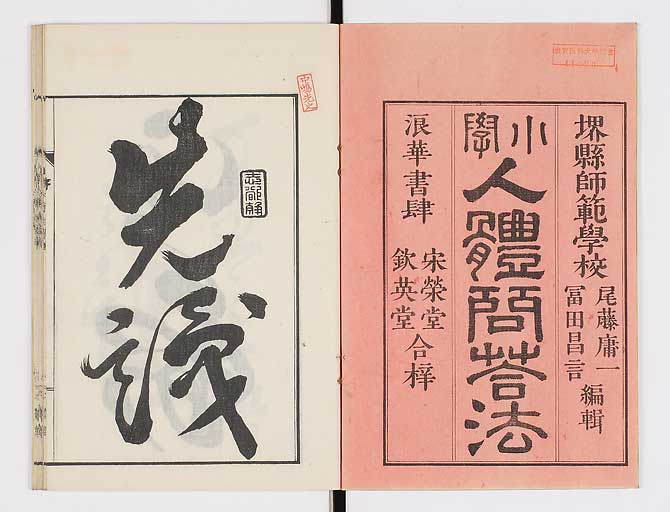 堺縣師範學校
尾藤庸一
冨田昌言
編輯
小學
人體問荅法
浪華書肆
宋榮堂
欽英堂
合梓
先識